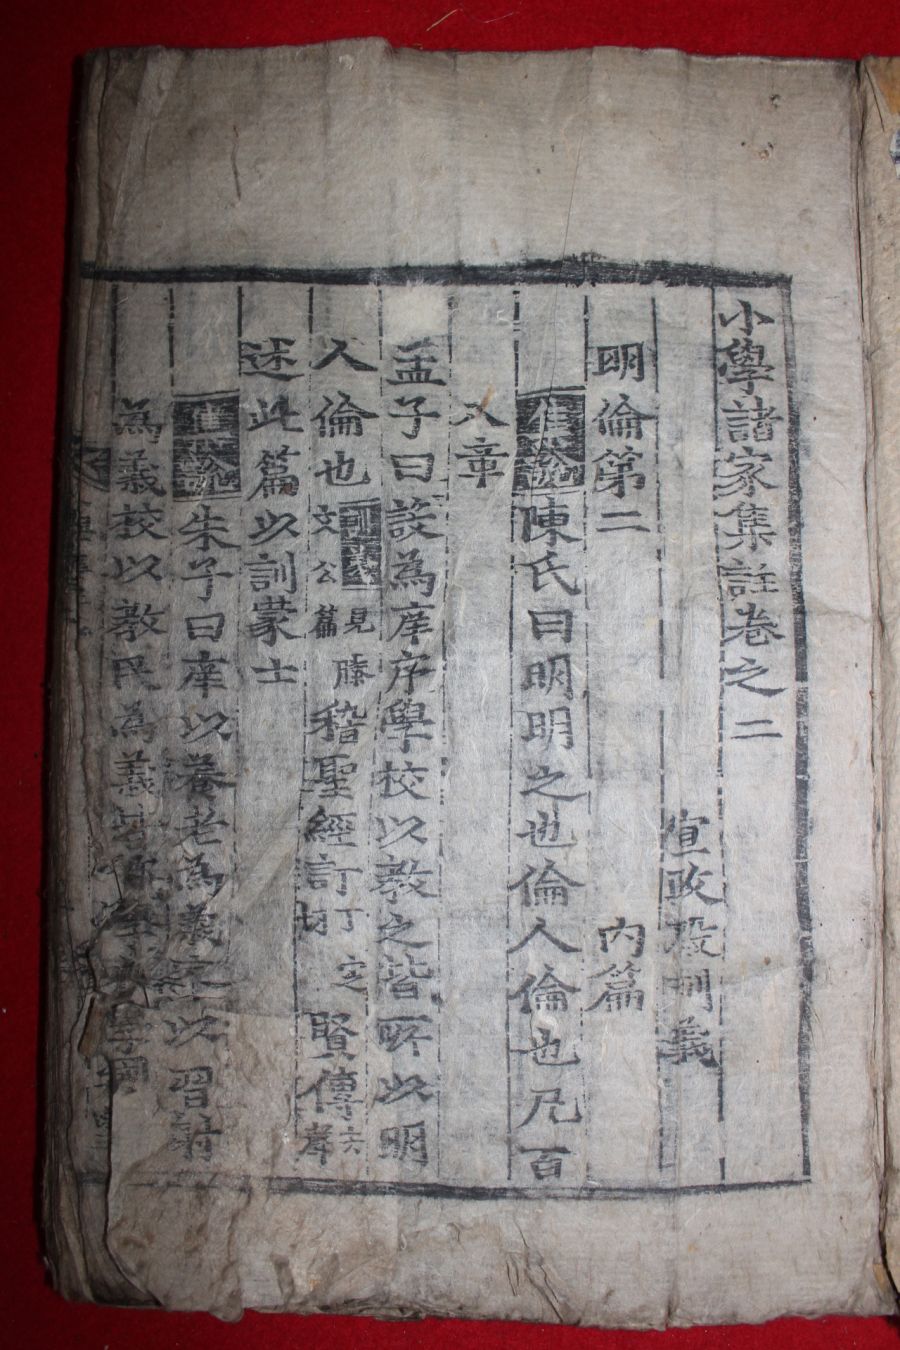 小學諸家集註卷之二
宣政殿訓義
內篇
明倫第二
集說陳氏曰明明之也倫人倫也凡百
八章
孟子曰設為庠序學校以教之皆所以明
人倫也訓義見滕文公篇稽聖經訂訂定賢傳
述此篇以訓蒙士
集說朱子曰庠以養老為義序以習射
為義校以教民為義